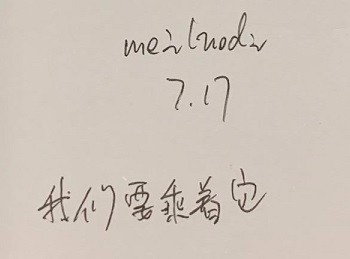 7.17
我们要乘着它